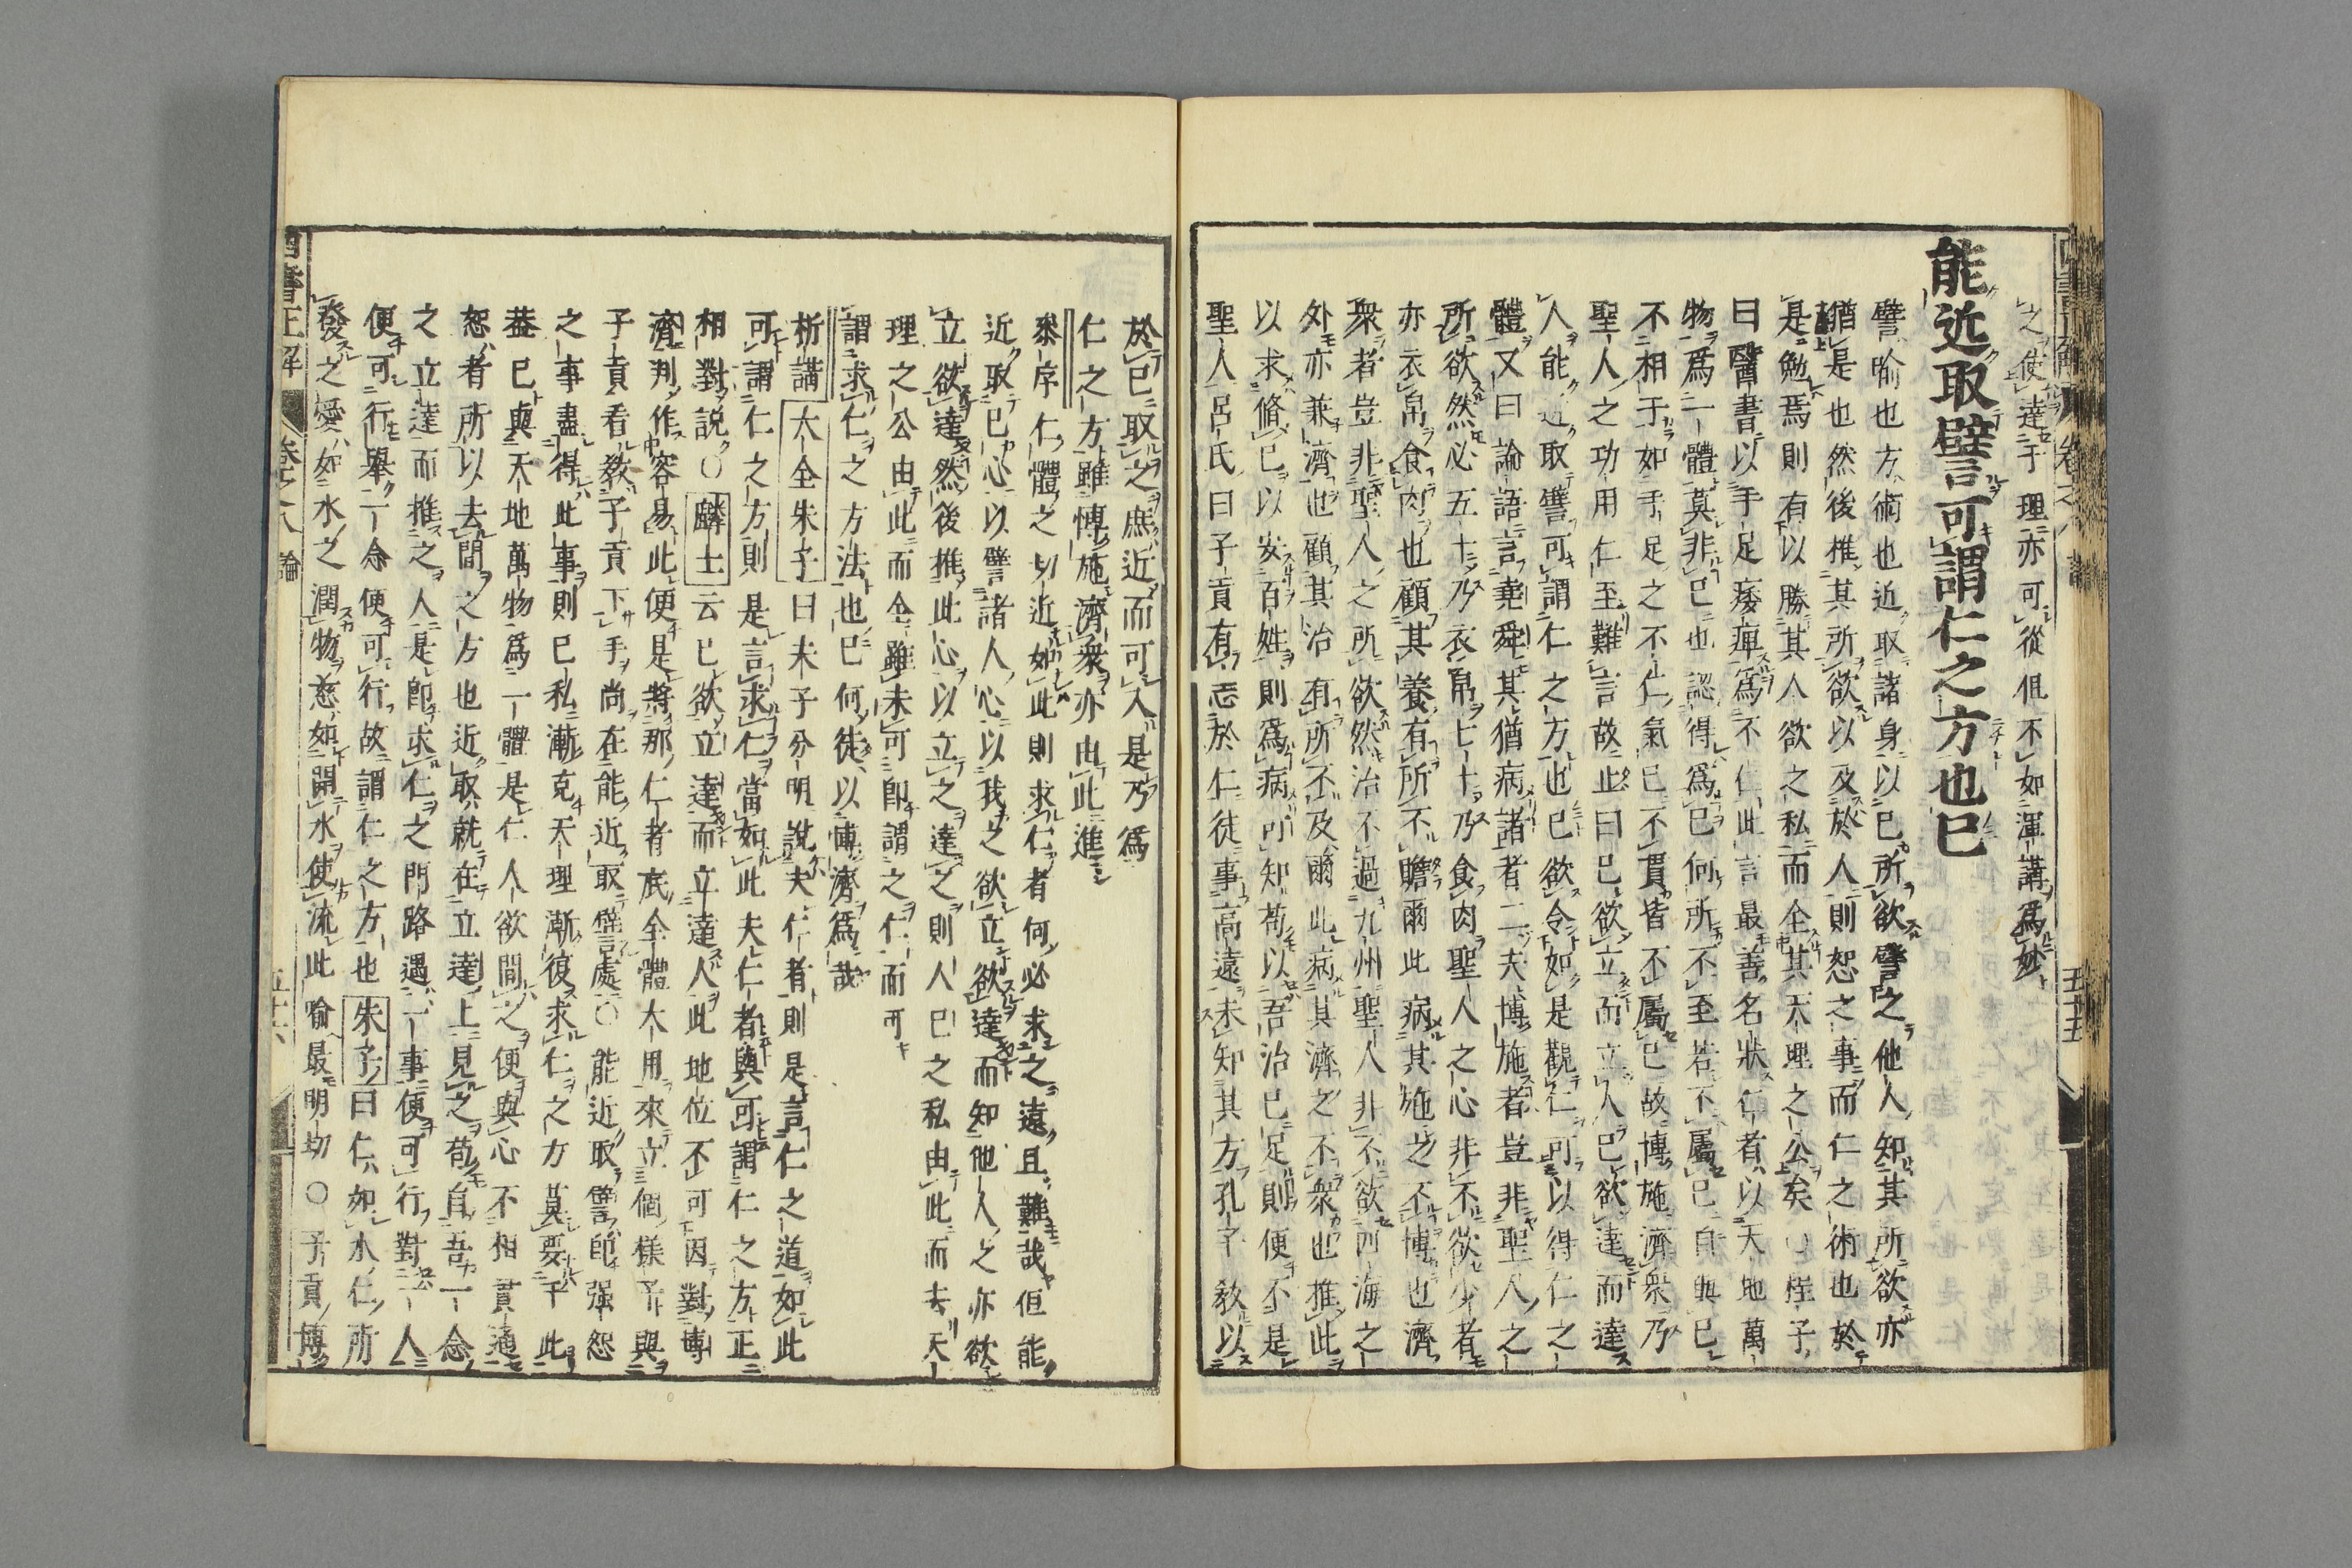 之使達于理亦可從但不如渾講爲妙
能近取譬可謂仁之方也已
譬喻也方術也近取諸身以已所欲譬之他人知其所欲亦
猶是也然後推其所欲以及於人則恕之事而仁之術也於
是勉焉則有以勝其人欲之私而全其天理之公矣○程子
曰醫書以手足痿痺爲不仁此言最善名狀仁者以天地萬
物爲一體莫非已也認得爲已何所不至若不屬已自與已
不相干如手足之不仁氣已不貫皆不屬已故博施濟衆乃
聖人之功用仁至難言故止曰已欲立而立人已欲達而達
人能近取譬可謂仁之方也已欲令如是觀仁可以得仁之
體又曰論語言堯舜其猶病諸者二夫博施者豈非聖人之
所欲然必五十乃衣帛七十乃食肉聖人之心非不欲少者
亦衣帛食肉也顧其養有所不贍爾此病其施之不博也濟
衆者豈非聖人之所欲然治不過九州聖人非不欲四海之
外亦兼濟也顧其治有所不及爾此病其濟之不衆也推此
以求脩已以安百姓則爲病可知苟以吾治已足則便不是
聖人呂氏曰子貢有志於仁徒事高遠未知其方孔子敎以
於已取之庶近而可入是乃爲
仁之方雖博施濟衆亦由此進
叅序仁體之切近如此則求仁者何必求之遠且難哉但能
近取已心以譬諸人心以我之欲立欲達而知他人之亦欲
立欲達然後推此心以立之達之則人已之私由此而去天
理之公由此而全雖未可卽謂之仁而可
謂求仁之方法也已何徒以博濟爲哉
析講大全朱子曰夫子分明說夫仁者則是言仁之道如此
可謂仁之方則是言求仁當如此夫仁者與可謂仁之方正
相對說○麟士云已欲立達而立達人此地位不可因對博
濟判作容易此便是將那仁者底全體大用來立個樣子與
子貢看敎子貢下手尚在能近取譬處○能近取譬卽强恕
之事盡得此事則已私漸克天理漸復求仁之方莫要于此
葢已與天地萬物爲一體是仁人欲間之便與心不相貫通
恕者所以去間之方也近取就在立達上見之苟自吾一念
之立達而推之人是卽求仁之門路遇一事便可行對一人
便可行舉一念便可行故謂仁之方也朱子曰仁如水仁所
發之愛如水之潤物慈如開水使流此喻最明切○子貢博
四書正解
卷之八
論
五十五
四書正解
卷之八
論
五十六